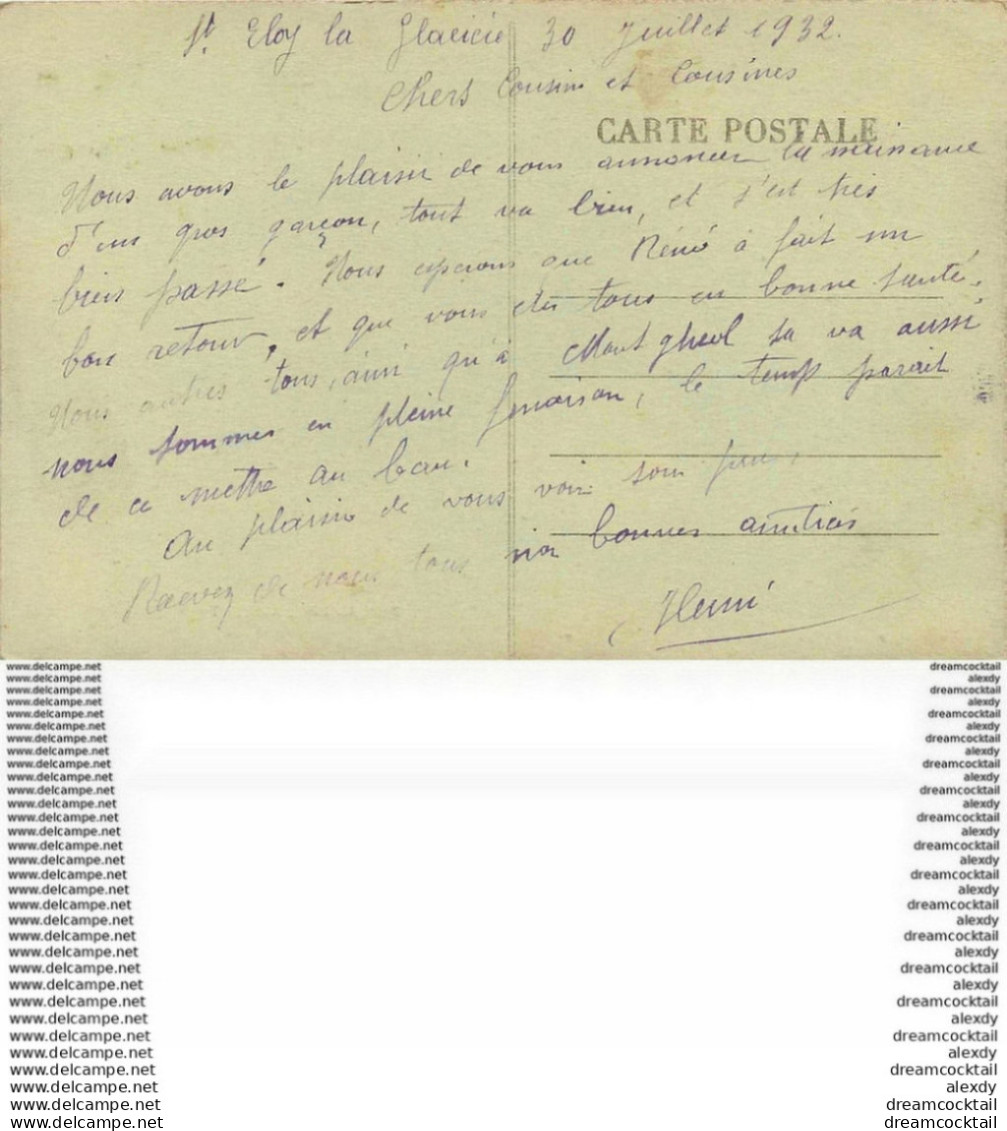 St Eloy la Glacière 30 Juillet 1932.
Chers Cousins et Cousines
CARTE POSTALE
Nous avons le plaisir de vous annoncer la naissance
d'un gros garçon, tout va bien, et s'est très
bien passé. Nous espérons que Réné à fait un
bon retour, et que vous êtes tous en bonne santé.
Nous autres tous, ainsi qu'à sa va aussi
nous sommes en pleine fenaison, le temp parait
de ce mettre au beau.
Au plaisir de vous voir sous peu,
Recevez de nous tous nos bonnes amitiés
Henri
www.delcampe.net dreamcocktail
www.delcampe.net alexdy
www.delcampe.net dreamcocktail
www.delcampe.net alexdy
www.delcampe.net dreamcocktail
www.delcampe.net alexdy
www.delcampe.net dreamcocktail
www.delcampe.net alexdy
www.delcampe.net dreamcocktail
www.delcampe.net alexdy
www.delcampe.net dreamcocktail
www.delcampe.net alexdy
www.delcampe.net dreamcocktail
www.delcampe.net alexdy
www.delcampe.net dreamcocktail
www.delcampe.net alexdy
www.delcampe.net dreamcocktail
www.delcampe.net alexdy
www.delcampe.net dreamcocktail
www.delcampe.net alexdy
www.delcampe.net dreamcocktail
www.delcampe.net alexdy
www.delcampe.net dreamcocktail
www.delcampe.net alexdy
www.delcampe.net dreamcocktail
www.delcampe.net alexdy
www.delcampe.net dreamcocktail
www.delcampe.net alexdy
www.delcampe.net dreamcocktail
www.delcampe.net alexdy
www.delcampe.net dreamcocktail
www.delcampe.net dreamcocktail